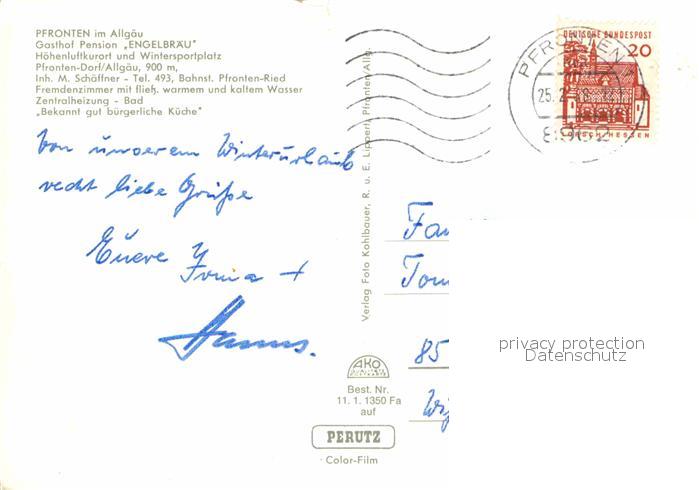 PFRONTEN im Allgäu
Gasthof Pension „ENGELBRÄU"
Höhenluftkurort und Wintersportplatz
Pfronten-Dorf/Allgäu, 900 m,
Inh. M. Schäffner - Tel. 493, Bahnst. Pfronten-Ried
Fremdenzimmer mit fließ. warmem und kaltem Wasser
Zentralheizung - Bad
„Bekannt gut bürgerliche Küche"
Von unserem Winterurlaub
recht liebe Grüße
Euere Irma +
Hannes.
Verlag Foto Kohlbauer, R. u. E. Lippert, Pfronten Allg.
AKO
Best. Nr.
11. 1. 1350 Fa
auf
PERUTZ
Color-Film
DEUTSCHE BUNDESPOST
20
PFRONTEN
8962
Fa
85
privacy protection
Datenschutz